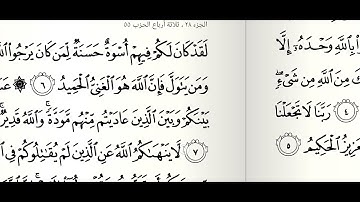 الجزء ٢٨ ، ثلاثة أرباع الحزب ٥٥
لَقَدْ كَانَ لَكُمْ فِيهِمْ أُسْوَةٌ حَسَنَةٌ لِّمَن كَانَ يَرْجُوا۟ ٱللَّهَ
وَمَن يَتَوَلَّ فَإِنَّ ٱللَّهَ هُوَ ٱلْغَنِىُّ ٱلْحَمِيدُ ٦
بَيْنَكُمْ وَبَيْنَ ٱلَّذِينَ عَادَيْتُم مِّنْهُم مَّوَدَّةً ۚ وَٱللَّهُ قَدِيرٌ
٧ لَّا يَنْهَىٰكُمُ ٱللَّهُ عَنِ ٱلَّذِينَ لَمْ يُقَـٰتِلُوكُمْ فِى
بِٱللَّهِ وَحْدَهُۥٓ إِلَّا
لَكَ مِنَ ٱللَّهِ مِن شَىْءٍ ۖ
٤ رَبَّنَا لَا تَجْعَلْنَا
ٱلْعَزِيزُ ٱلْحَكِيمُ ٥